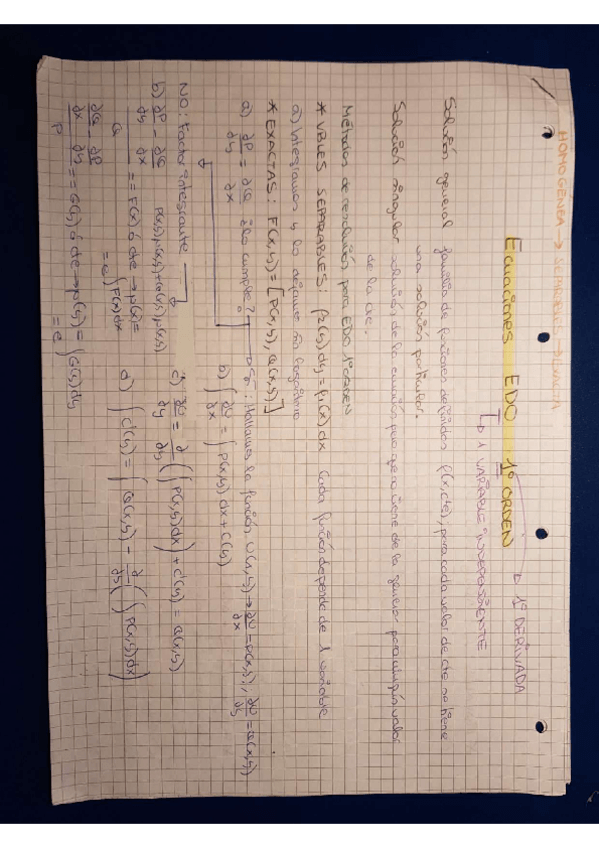 HOMOGÉNEA → SEPARABLES → EXACTA
Ecuaciones EDO 1º ORDEN
→ 1ª DERIVADA
→ 1 VARIABLE INDEPENDIENTE
Solución general: familia de funciones definidas f(x,cte); para cada valor de cte se tiene
una solución particular.
Solución singular: solución de la ecuación pero que no viene de la general para ningún valor
de la cte.
Métodos de resolución para EDO 1º ORDEN
* VBLES SEPARABLES: f2(y)dy = f1(x)dx Cada función depende de 1 variable
a) Integramos y lo dejamos en
* EXACTAS: F(x,y) = [P(x,y), Q(x,y)]
a) ∂P/∂y = ∂Q/∂x ¿lo cumple?
→ SÍ: Hallamos la función U(x,y) → ∂U/∂x = P(x,y), ∂U/∂y = Q(x,y)
b) ∫ ∂U/∂x = ∫ P(x,y) dx + C(y)
c) ∂U/∂y = ∂/∂y (∫ P(x,y)dx) + C'(y) = Q(x,y)
d) ∫ C'(y) = ∫ Q(x,y) - ∂/∂y (∫ P(x,y)dx)
NO: Factor integrante
P(x,y)μ(x,y) + Q(x,y)μ(x,y)
b) (∂P/∂y - ∂Q/∂x)/Q == F(x) ó cte → μ(x) = e^∫F(x)dx
(∂Q/∂x - ∂P/∂y)/P == G(y) ó cte → μ(y) = e^∫G(y)dy